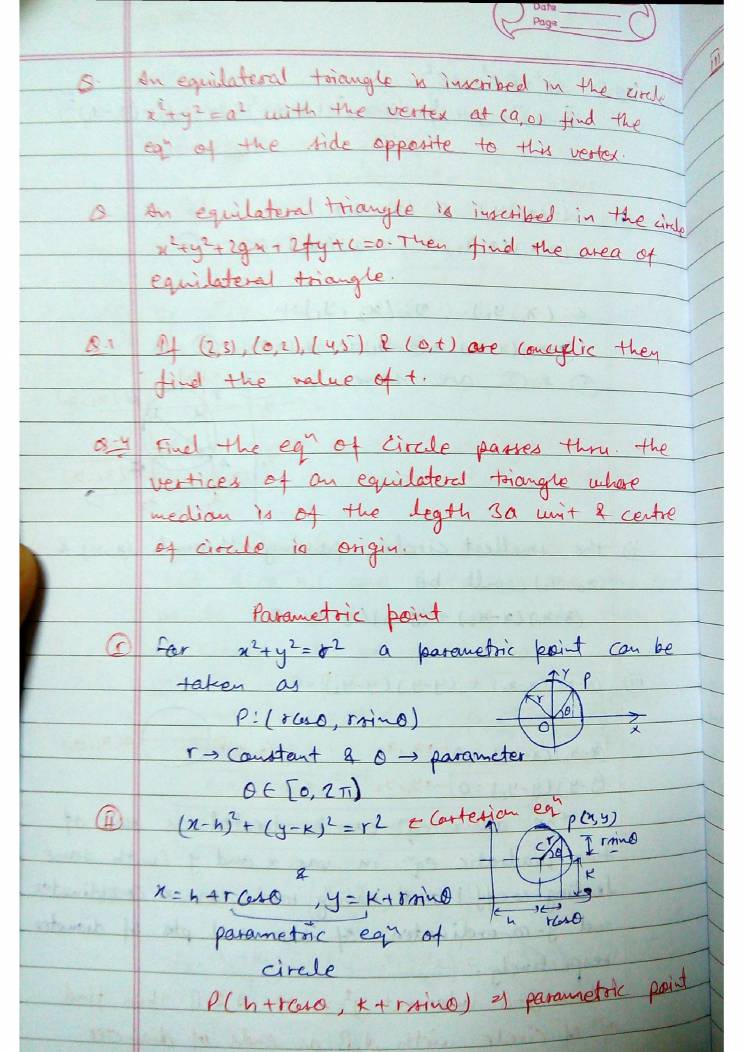 Date
Page
Q. An equilateral triangle is inscribed in the circle
x²+y²=a² with the vertex at (a,0) find the
eqⁿ of the side opposite to this vertex.
Q An equilateral triangle is inscribed in the circle
x²+y²+2gx+2fy+c=0. Then find the area of
equilateral triangle.
Q.3 If (2,3), (0,2), (4,5) & (0,t) are concyclic then
find the value of t.
Q-4 Find the eqⁿ of circle passes thru. the
vertices of an equilateral triangle whose
median is of the legth 3a unit & centre
of circle is origin.
Parametric point
(i) for x²+y²=r² a parametric point can be
taken as
P:(rcosθ, rsinθ)
r → constant & θ → parameter
θ ∈ [0, 2π)
Y P
r θ
O x
(ii) (x-h)²+(y-k)²=r² ← Cartesian eqⁿ
P(x,y)
C r θ rsinθ
k
h rcosθ
&
x=h+rcosθ , y=k+rsinθ
parametric eqⁿ of
circle
P(h+rcosθ, k+rsinθ) ⇒ parametric point